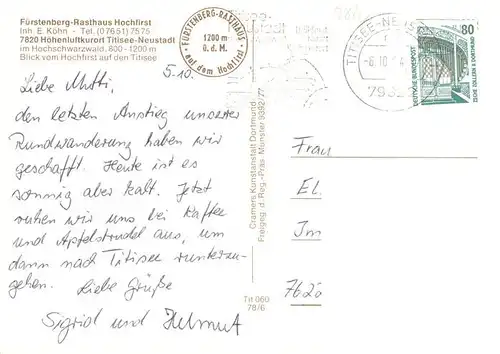 Fürstenberg-Rasthaus Hochfirst
Inh. E. Köhn - Tel. (07651) 7575
7820 Höhenluftkurort Titisee-Neustadt
im Hochschwarzwald, 800-1200 m
Blick vom Hochfirst auf den Titisee
FÜRSTENBERG-RASTHAUS
1200 m
ü. d. M.
auf dem Hochfirst
5.10.
Liebe Mutti,
den letzten Anstieg unserer
Rundwanderung haben wir
geschafft. Heute ist es
sonnig aber kalt. Jetzt
ruhen wir uns bei Kaffee
und Apfelstrudel aus, um
dann nach Titisee runterzu-
gehen. Liebe Grüße
Sigrid und Helmut
Cramers Kunstanstalt Dortmund
Freigeg. d. Reg.-Präs. Münster 9392/77
Tit 060
78/6
TITISEE-NEU
-6.10
80
DEUTSCHE BUNDESPOST
ZECHE ZOLLERN II DORTMUND
Frau
El.
Im